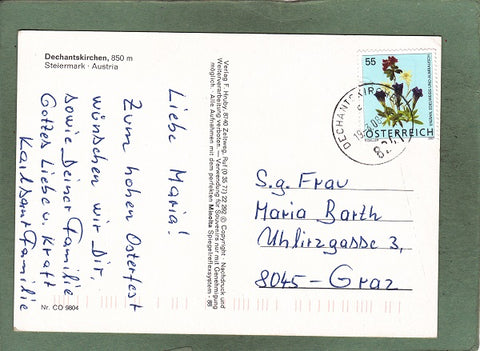 Dechantskirchen, 850 m
Steiermark · Austria
Liebe Maria!
Zum hohen Osterfest
wünschen wir Dir,
sowie Deiner Familie
Gottes Liebe u. Kraft
Familie
Nr. CO 9804
Verlag F. Hruby, 8740 Zeltweg, Ruf (0 35 77) 22 282 © Copyright · Nachdruck und
Weiterverarbeitung verboten. — Verwendung für Souvenire nur mit Genehmigung
möglich · Alle Aufnahmen mit dem perfekten Minolta Spiegelreflexsystem · 98
55
ÖSTERREICH
DECHANTSKIRCHEN
S.g. Frau
Maria Barth
Uhlirzgasse 3,
8045 - Graz